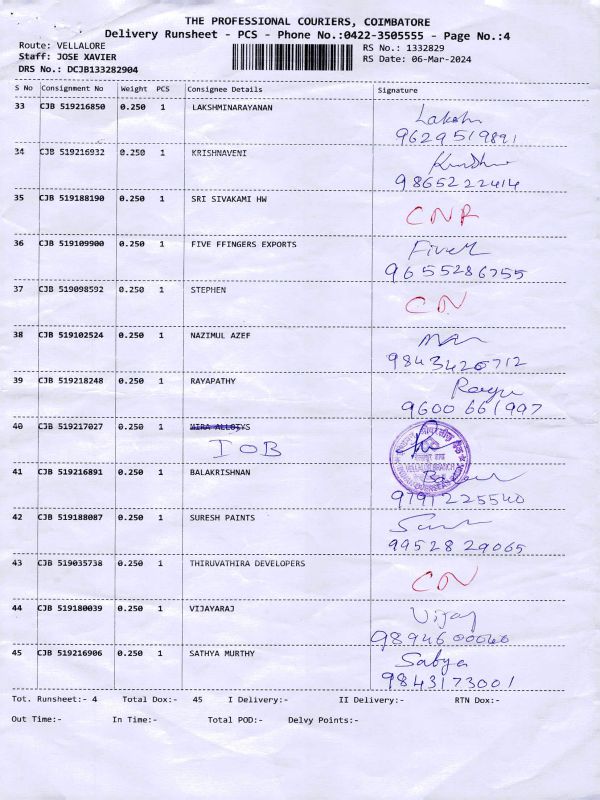 THE PROFESSIONAL COURIERS, COIMBATORE
Delivery Runsheet - PCS - Phone No.:0422-3505555 - Page No.:4
Route: VELLALORE
RS No.: 1332829
Staff: JOSE XAVIER
RS Date: 06-Mar-2024
DRS No.: DCJB133282904
S No Consignment No Weight PCS Consignee Details Signature
33 CJB 519216850 0.250 1 LAKSHMINARAYANAN Lakshm
9629519891
34 CJB 519216932 0.250 1 KRISHNAVENI
9865222414
35 CJB 519188190 0.250 1 SRI SIVAKAMI HW CNR
36 CJB 519109900 0.250 1 FIVE FFINGERS EXPORTS
9655286755
37 CJB 519098592 0.250 1 STEPHEN CN
38 CJB 519102524 0.250 1 NAZIMUL AZEF
9843420712
39 CJB 519218248 0.250 1 RAYAPATHY
9600661997
40 CJB 519217027 0.250 1 MIRA ALLOTYS
IOB
VELLALORE BRANCH
41 CJB 519216891 0.250 1 BALAKRISHNAN
9191225540
42 CJB 519188087 0.250 1 SURESH PAINTS
9952829065
43 CJB 519035738 0.250 1 THIRUVATHIRA DEVELOPERS CN
44 CJB 519180039 0.250 1 VIJAYARAJ Vijay
9894600060
45 CJB 519216906 0.250 1 SATHYA MURTHY Satya
9843173001
Tot. Runsheet:- 4 Total Dox:- 45 I Delivery:- II Delivery:- RTN Dox:-
Out Time:- In Time:- Total POD:- Delvy Points:-